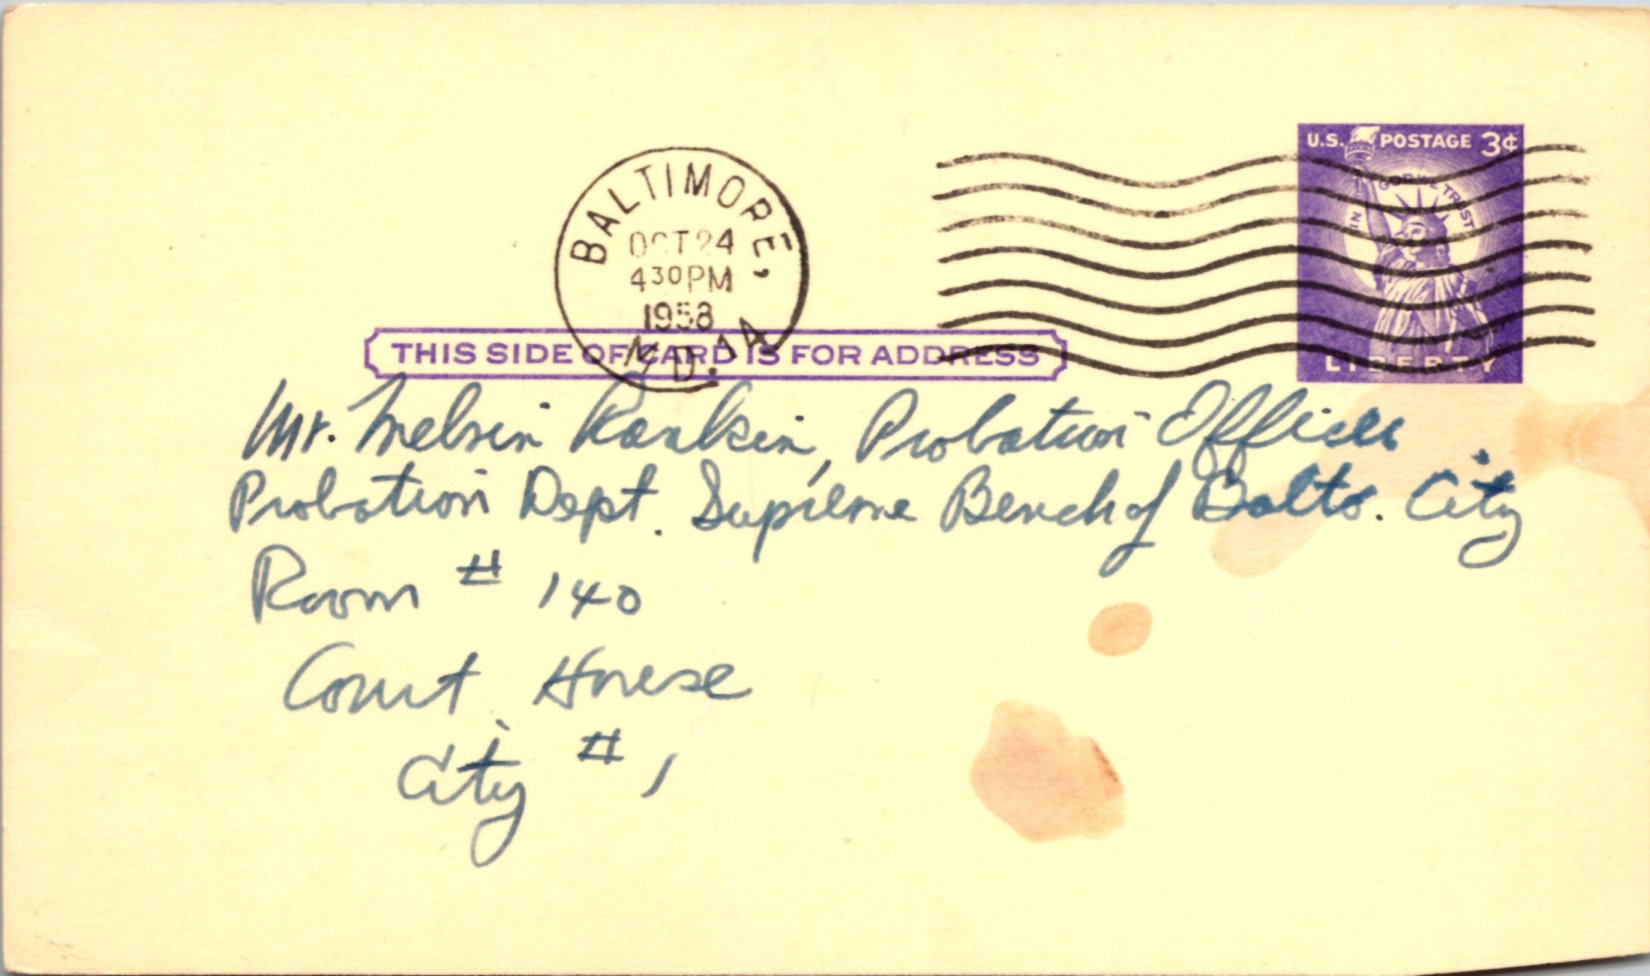 U.S. POSTAGE 3¢
IN GOD WE TRUST
LIBERTY
BALTIMORE,
OCT 24
4 30 PM
1958
MD. 14
THIS SIDE OF CARD IS FOR ADDRESS
Mr. Melvin Rankin, Probation Officer
Probation Dept. Supreme Bench of Balto. City
Room # 140
Court House
City #1